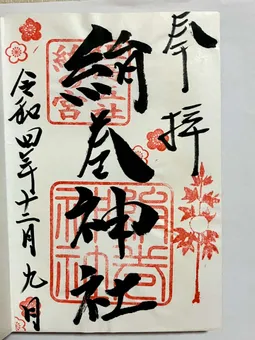 奉拝
絹巻神社
令和四年十二月九日